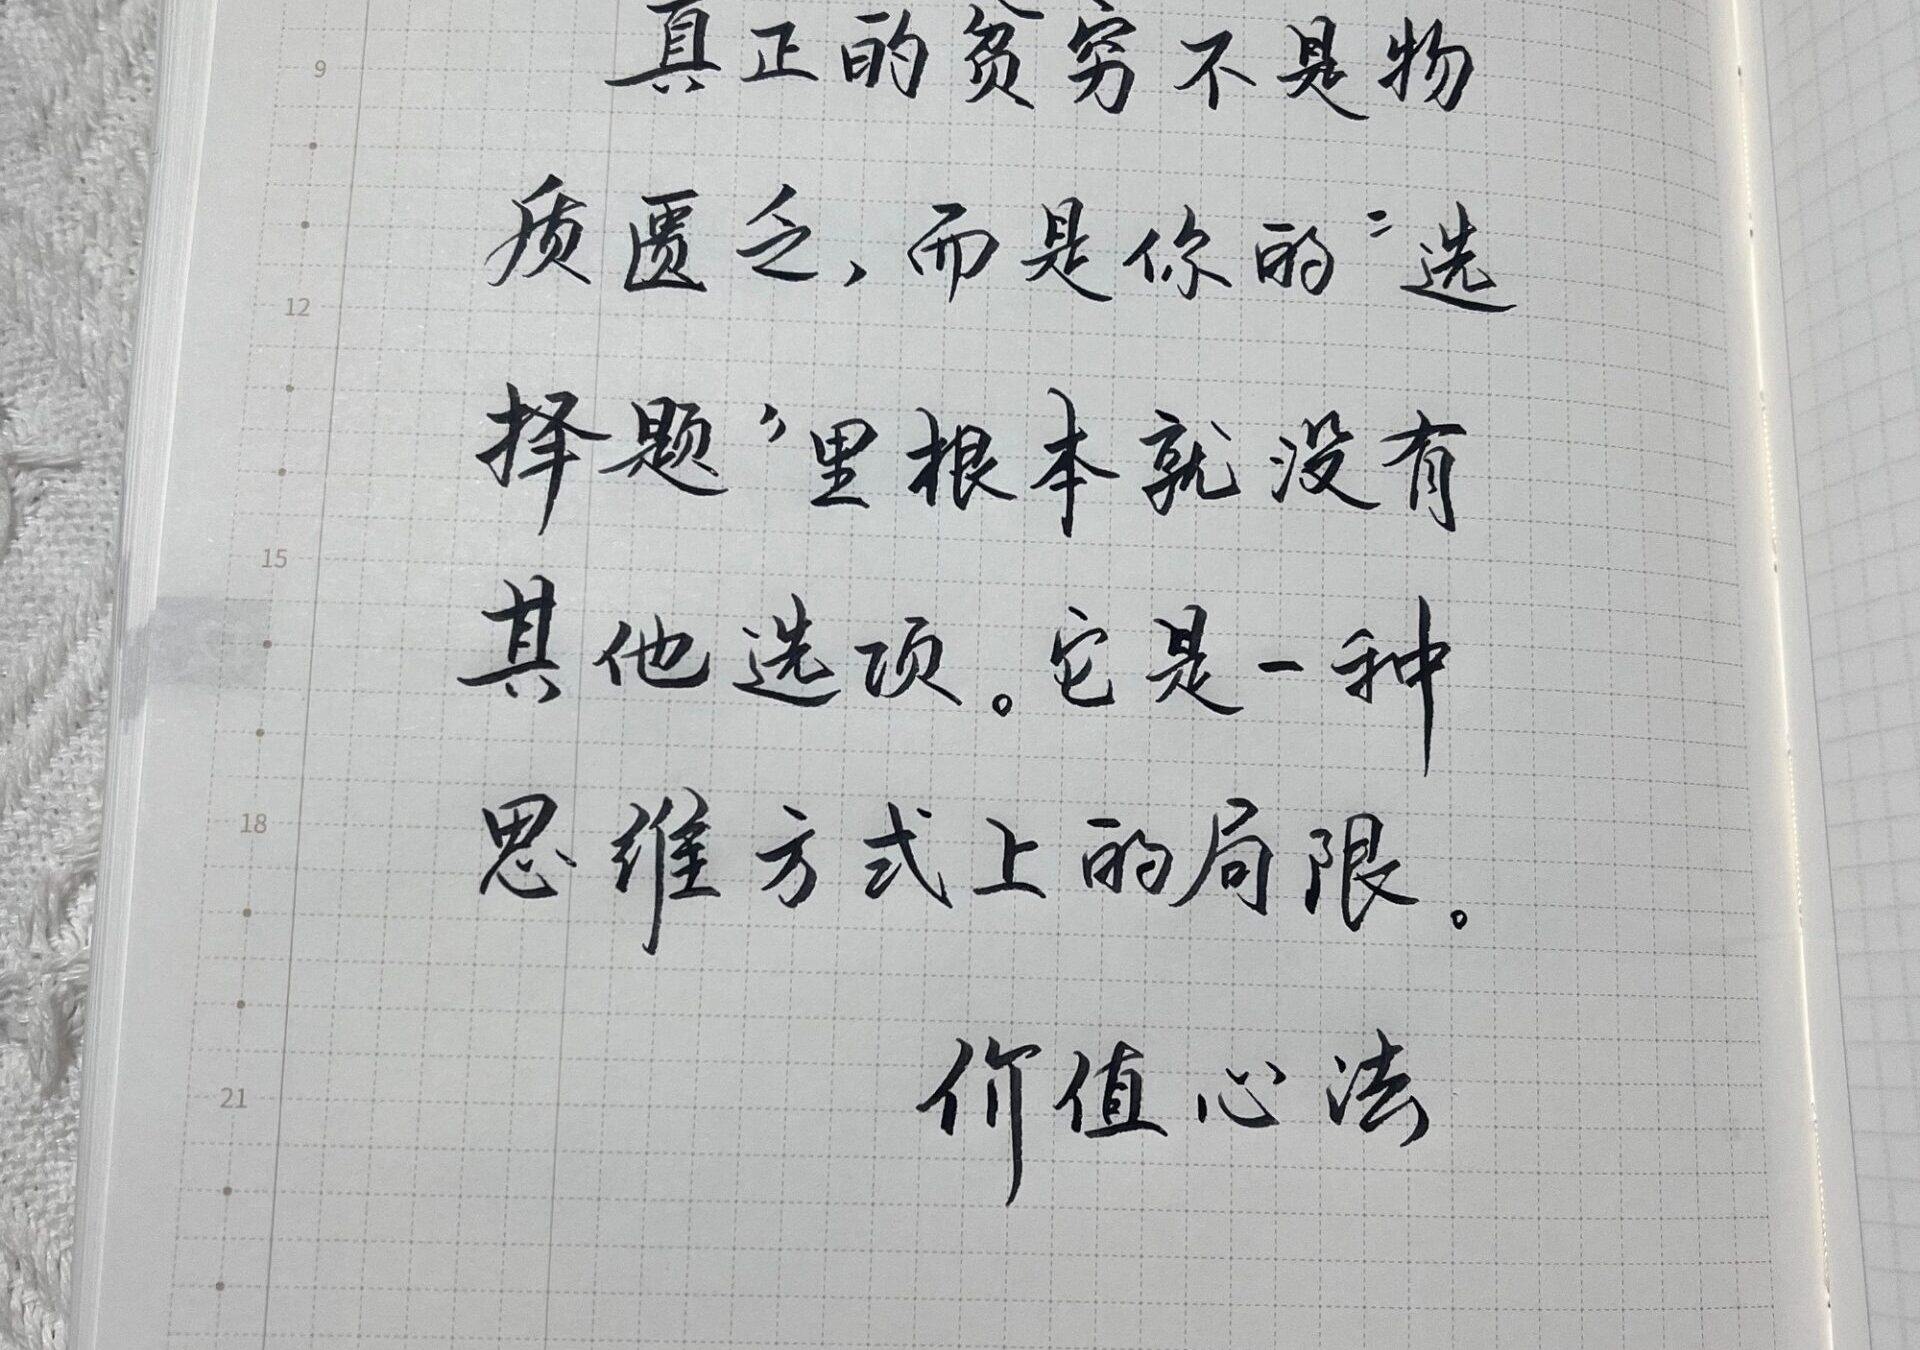 真正的贫穷不是物
质匮乏，而是你的“选
择题”里根本就没有
其他选项。它是一种
思维方式上的局限。
价值心法
9
12
15
18
21